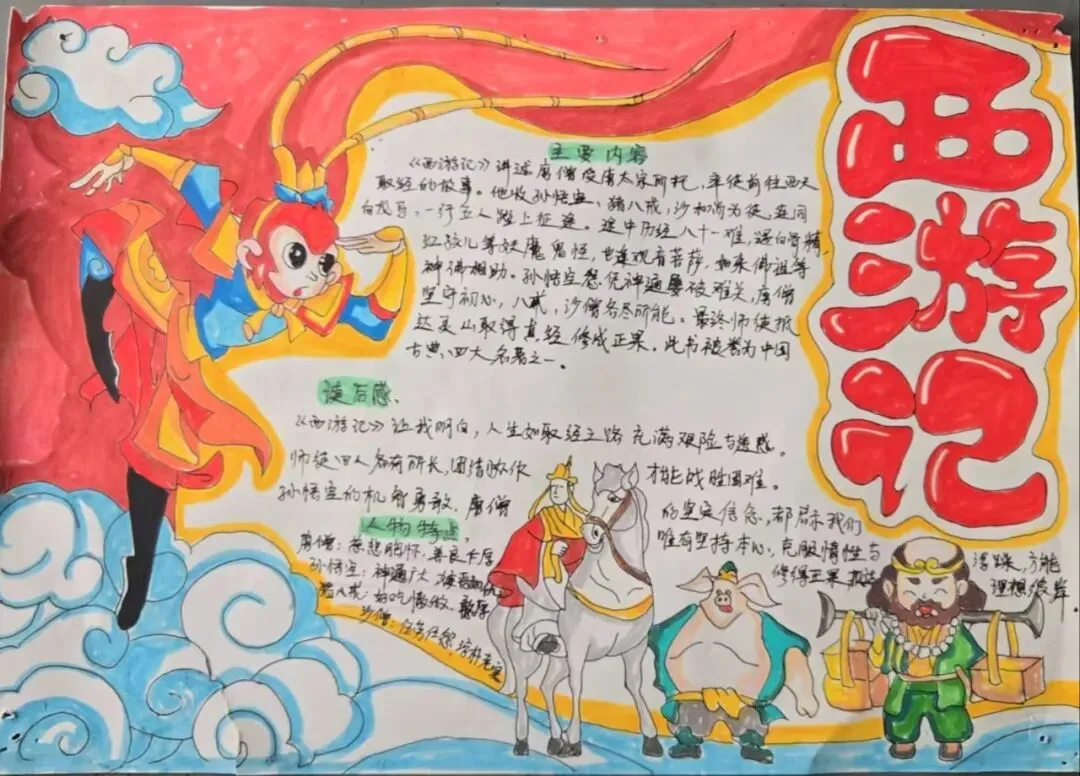 西游记
主要内容
《西游记》讲述唐僧受唐太宗所托，率徒前往西天
取经的故事。他收孙悟空、猪八戒，沙和尚为徒，连同
白龙马，一行五人踏上征途。途中历经八十一难，遇白骨精
红孩儿等妖魔鬼怪，也逢观音菩萨，如来佛祖等
神佛相助。孙悟空凭神通屡破难关，唐僧
坚守初心，八戒，沙僧各尽所能。最终师徒抵
达灵山取得真经修成正果。此书被誉为中国
古典四大名著之一。
读后感、
《西游记》让我明白，人生如取经之路充满艰险与迷惑。
师徒四人各有所长，团结协作才能战胜困难。
孙悟空的机智勇敢，唐僧的坚定信念，都启示我们
唯有坚持本心，克服惰性与浮躁，方能
修得正果 理想彼岸
人物特点
唐僧：慈悲胸怀，善良仁厚
孙悟空：神通广大
猪八戒：好吃懒做，憨厚
沙僧：任劳任怨，